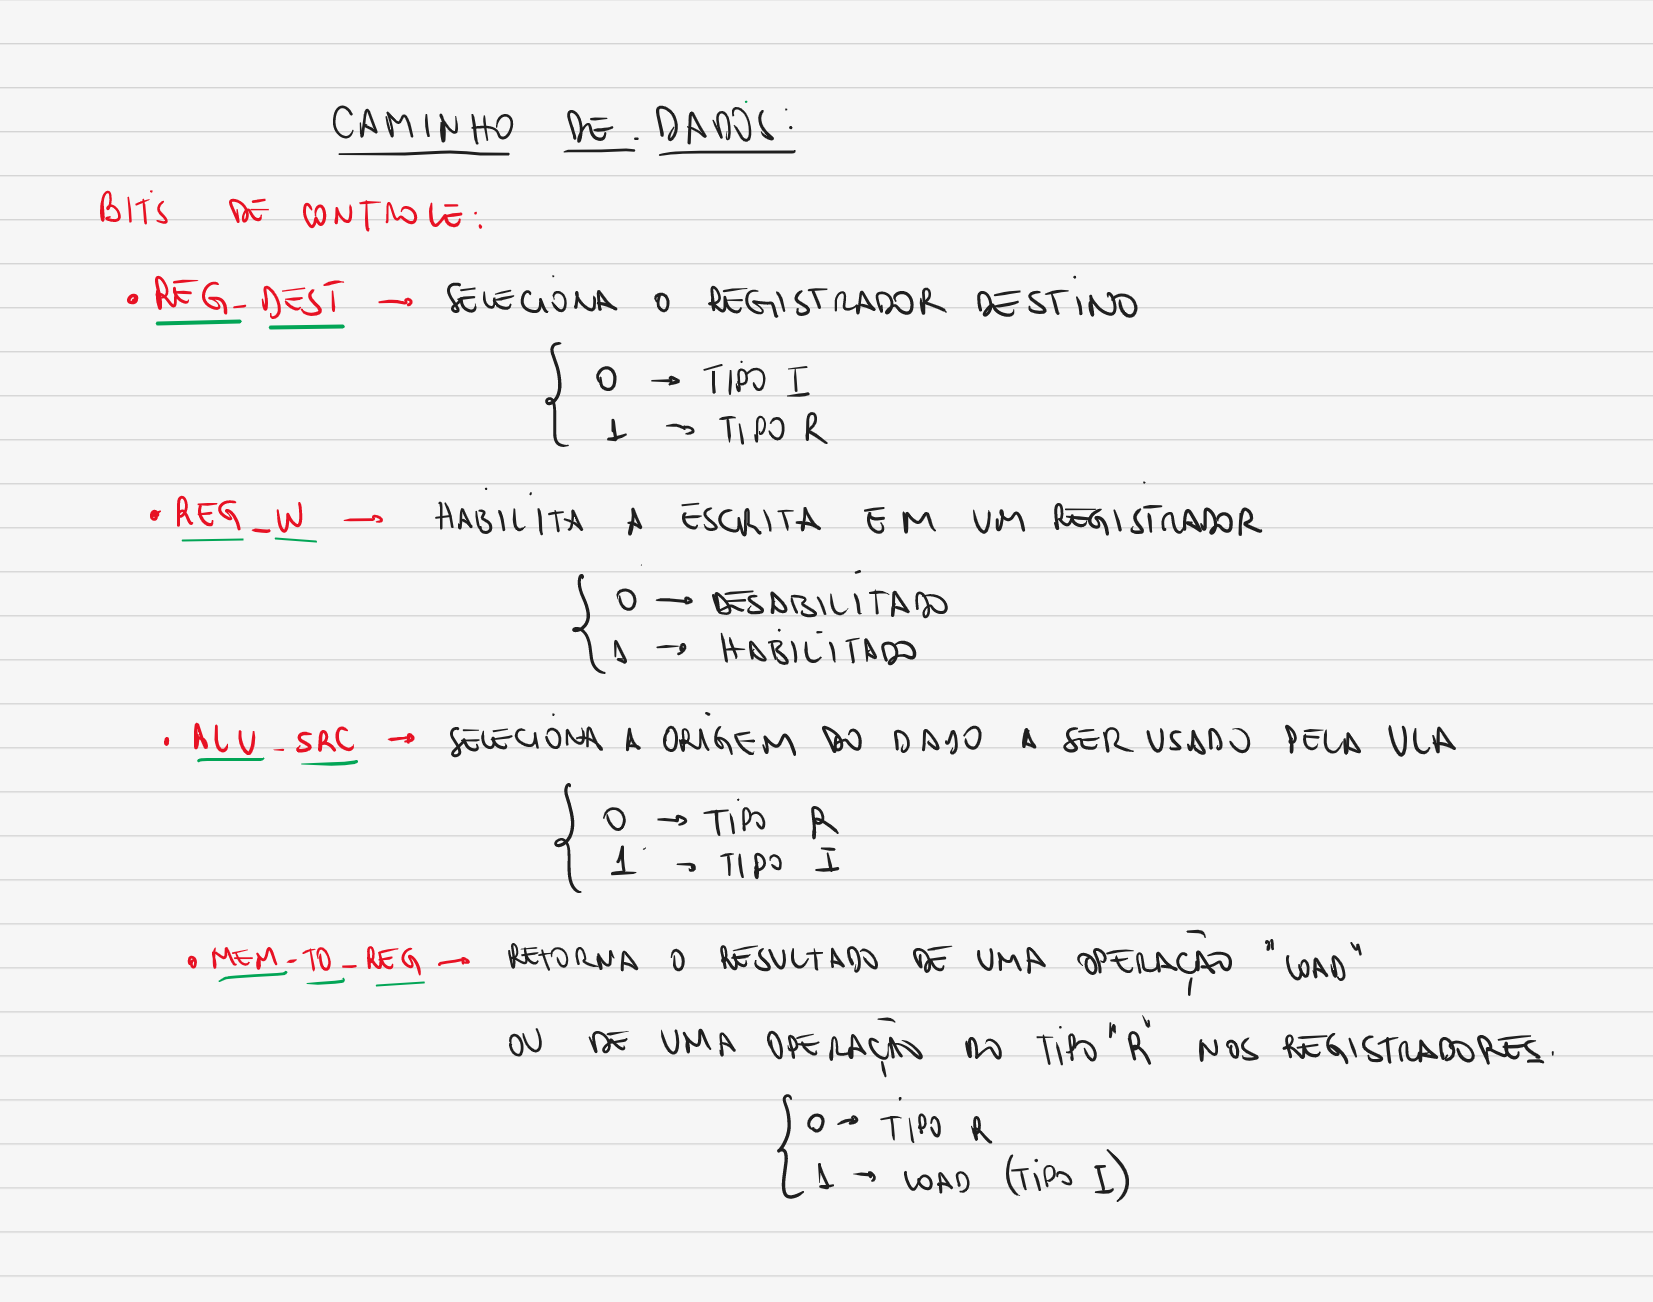 CAMINHO DE DADOS:
BITS DE CONTROLE:
• REG_DEST → SELECIONA O REGISTRADOR DESTINO
0 → TIPO I
1 → TIPO R
• REG_W → HABILITA A ESCRITA EM UM REGISTRADOR
0 → DESABILITADO
1 → HABILITADO
• ALU_SRC → SELECIONA A ORIGEM DO DADO A SER USADO PELA ULA
0 → TIPO R
1 → TIPO I
• MEM_TO_REG → RETORNA O RESULTADO DE UMA OPERAÇÃO "LOAD"
OU DE UMA OPERAÇÃO DO TIPO "R" NOS REGISTRADORES.
0 → TIPO R
1 → LOAD (TIPO I)